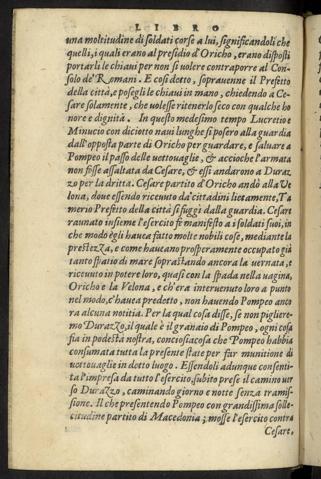 LIBRO
una moltitudine di soldati corse a lui, significandoli che
quelli, i quali erano al presidio d'Oricho, erano disposti
portarli le chiavi per non si volere contraporre al Con
solo de' Romani. E così detto, sopravenne il Prefetto
della città, e posegli le chiavi in mano, chiedendo a Ce-
sare solamente, che volesse ritenerlo seco con qualche ho
nore e dignità. In questo medesimo tempo Lucretio e
Minucio con diciotto navi lunghe si posero alla guardia
dall'opposta parte di Oricho per guardare, e salvare a
Pompeo il passo delle vettovaglie, & accioche l'armata
non fosse assaltata da Cesare, & essi andarono a Duraz
zo per la dritta. Cesare partito d'Oricho andò alla Ve
lona, dove essendo ricevuto da' cittadini lietamente, T a
merio Prefetto della città si fuggì dalla guardia. Cesare
raunato insieme l'esercito fe manifesto a i soldati suoi, in
che modo egli haveva fatto molte nobili cose, mediante la
prestezza, e come haveano prosperamente occupato già
tanto spatio di mare soprastando ancora la vernata, e
ricevuto in potere loro, quasi con la spada nella vagina,
Oricho e la Velona, e ch'era intervenuto loro a punto
nel modo, c'havea predetto, non havendo Pompeo anco
ra alcuna notitia. Per la qual cosa disse, se non pigliere-
mo Durazzo, il quale è il granaio di Pompeo, ogni cosa
fia in podestà nostra, conciosiacosa che Pompeo habbia
consumata tutta la presente state per far munitione di
vettovaglie in detto luogo. Essendoli adunque consenti-
ta l'impresa da tutto l'esercito, subito prese il camino ver
so Durazzo, caminando giorno e notte senza tramis-
sione. Il che presentendo Pompeo con grandissima solle-
citudine partito di Macedonia; mosse l'esercito contra
Cesare,